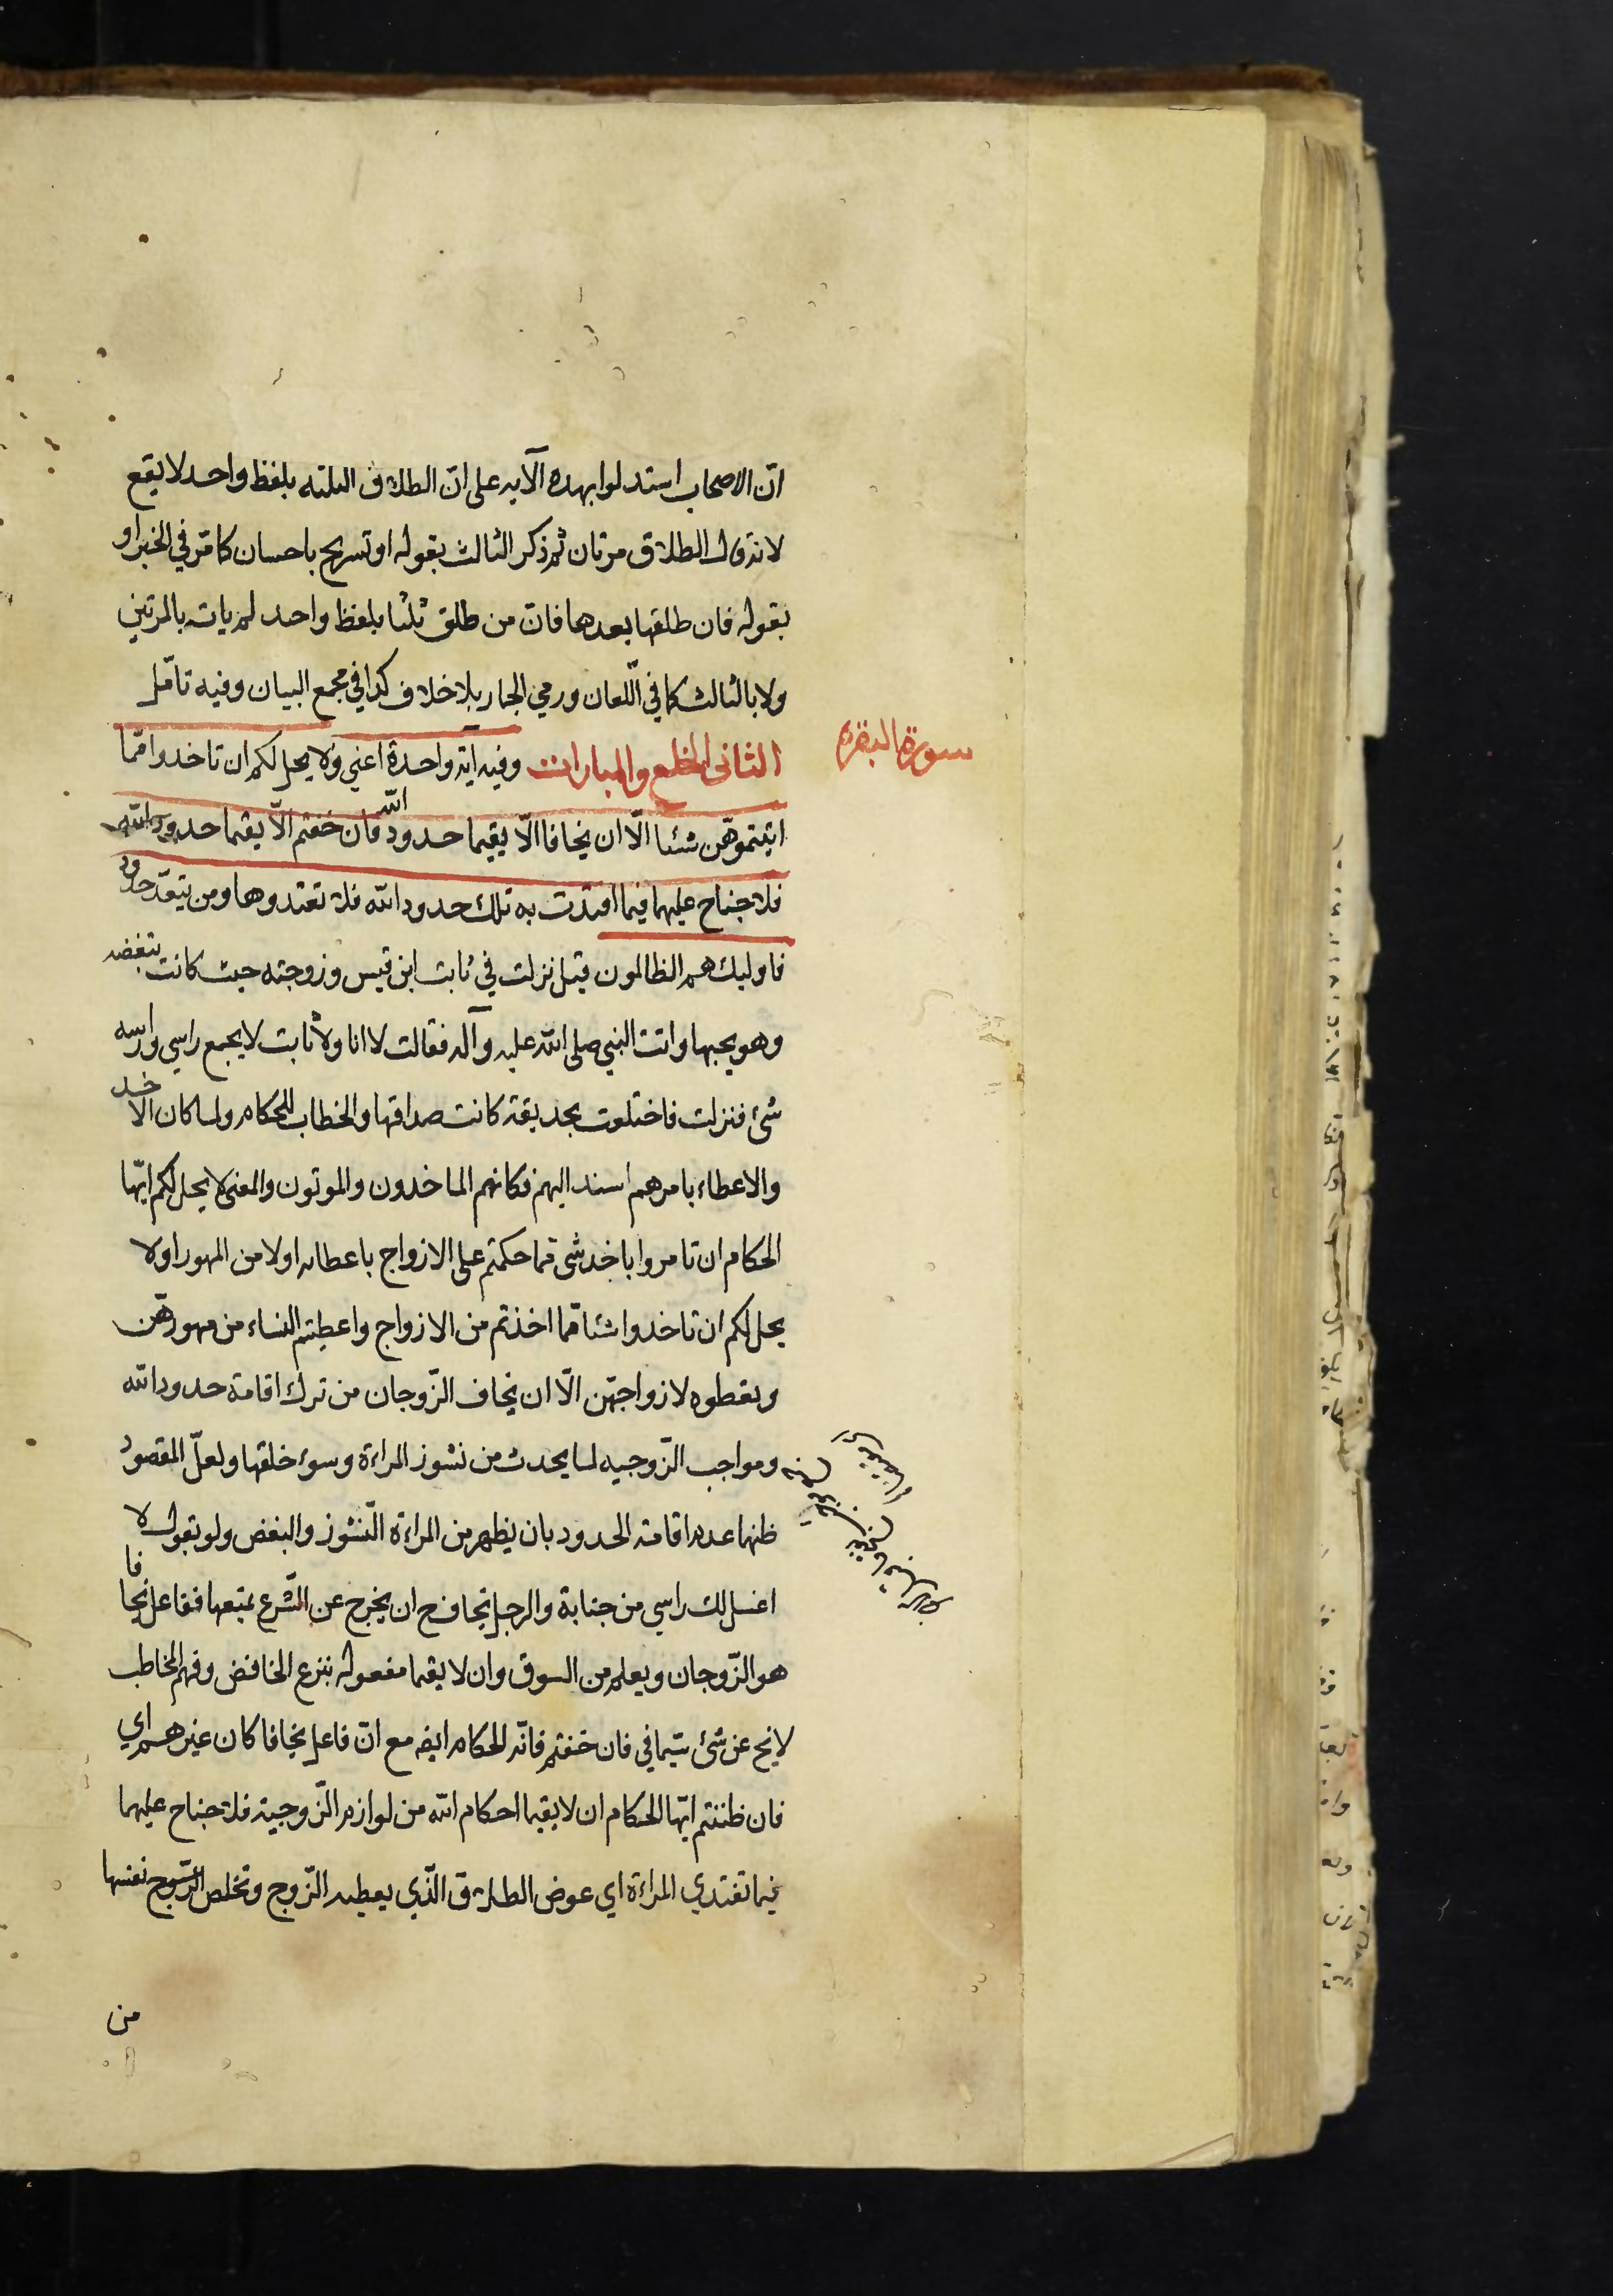 انّ الاصحاب استدلوا بهذه الآيه على انّ الطلاق الثلثه بلفظ واحد لا يقع
لانه قال الطلاق مرتان ثم ذكر الثالث بقوله او تسريح باحسان كما مّر في الخبر او
بقوله فان طلقها بعدهما فانّ من طلق ثلثا بلفظ واحد لم يات بالمرتين
ولا بالثالث كما في اللّعان ورمي الجمار بلا خلاف كذا في مجمع البيان وفيه تامّل
سورة البقره
الثانى الخلع والمبارات وفيه آية واحدة اعني ولا يحل لكم ان تاخذوا ممّا
اتيتموهّن شئا الّا ان يخافا الّا يقيما حدود الله فان خفتم الّا يقيما حدود الله
فلا جناح عليهما فيما افتدت به تلك حدود الله فلا تعتدوها ومن يتعدّ حدود
فاوليك هم الظالمون قيل نزلت في ثابت ابن قيس وزوجته حيث كانت تبغضه
وهو يحبها واتت النبي صلى الله عليه وآله فقالت لا انا ولا ثابت لا يجمع راسي وراسه
شئ فنزلت فاختلعت بحديقة كانت صداقها والخطاب للحكام ولما كان الاخذ
والاعطاء بامرهم اسند اليهم فكانهم الماخذون والموتون والمعنى لا يحل لكم ايّها
الحكام ان تامروا باخذ شئ ممّا حكمتم على الازواج باعطائه اولا من المهور او لا
يحل لكم ان تاخذوا شئا ممّا اخذتم من الازواج واعطيتم النساء من مهورهّن
وتعطوه لازواجهّن الّا ان يخاف الزّوجان من ترك اقامة حدود الله
ومواجب الزّوجيه لما يحدث من نشوز المراءة وسوء خلقها ولعلّ المقصود
ظنهما عدم اقامة الحدود بان يظهر من المراءة النّشوز والبغض ولو بقول لا
اغسل لك راسي من جنابة والرجل يخاف ح ان يخرج عن الشّرع بتبعها ففاعل يخافا
هو الزّوجان ويعلم من السوق وان لا يقيما مفعوله بنزع الخافض وفهم المخاطب
لا يخ عن شئ سيّما في فان خفتم فانّه للحكام ايضه مع انّ فاعل يخافا كان غيرهم اي
فان ظننتم ايّها الحكام ان لا يقيما احكام الله من لوازم الزّوجية فلا جناح عليهما
فيما تفتدي المراءة اي عوض الطلاق الّذي يعطيه الزّوج وتخلص الزّوج نفسها
من